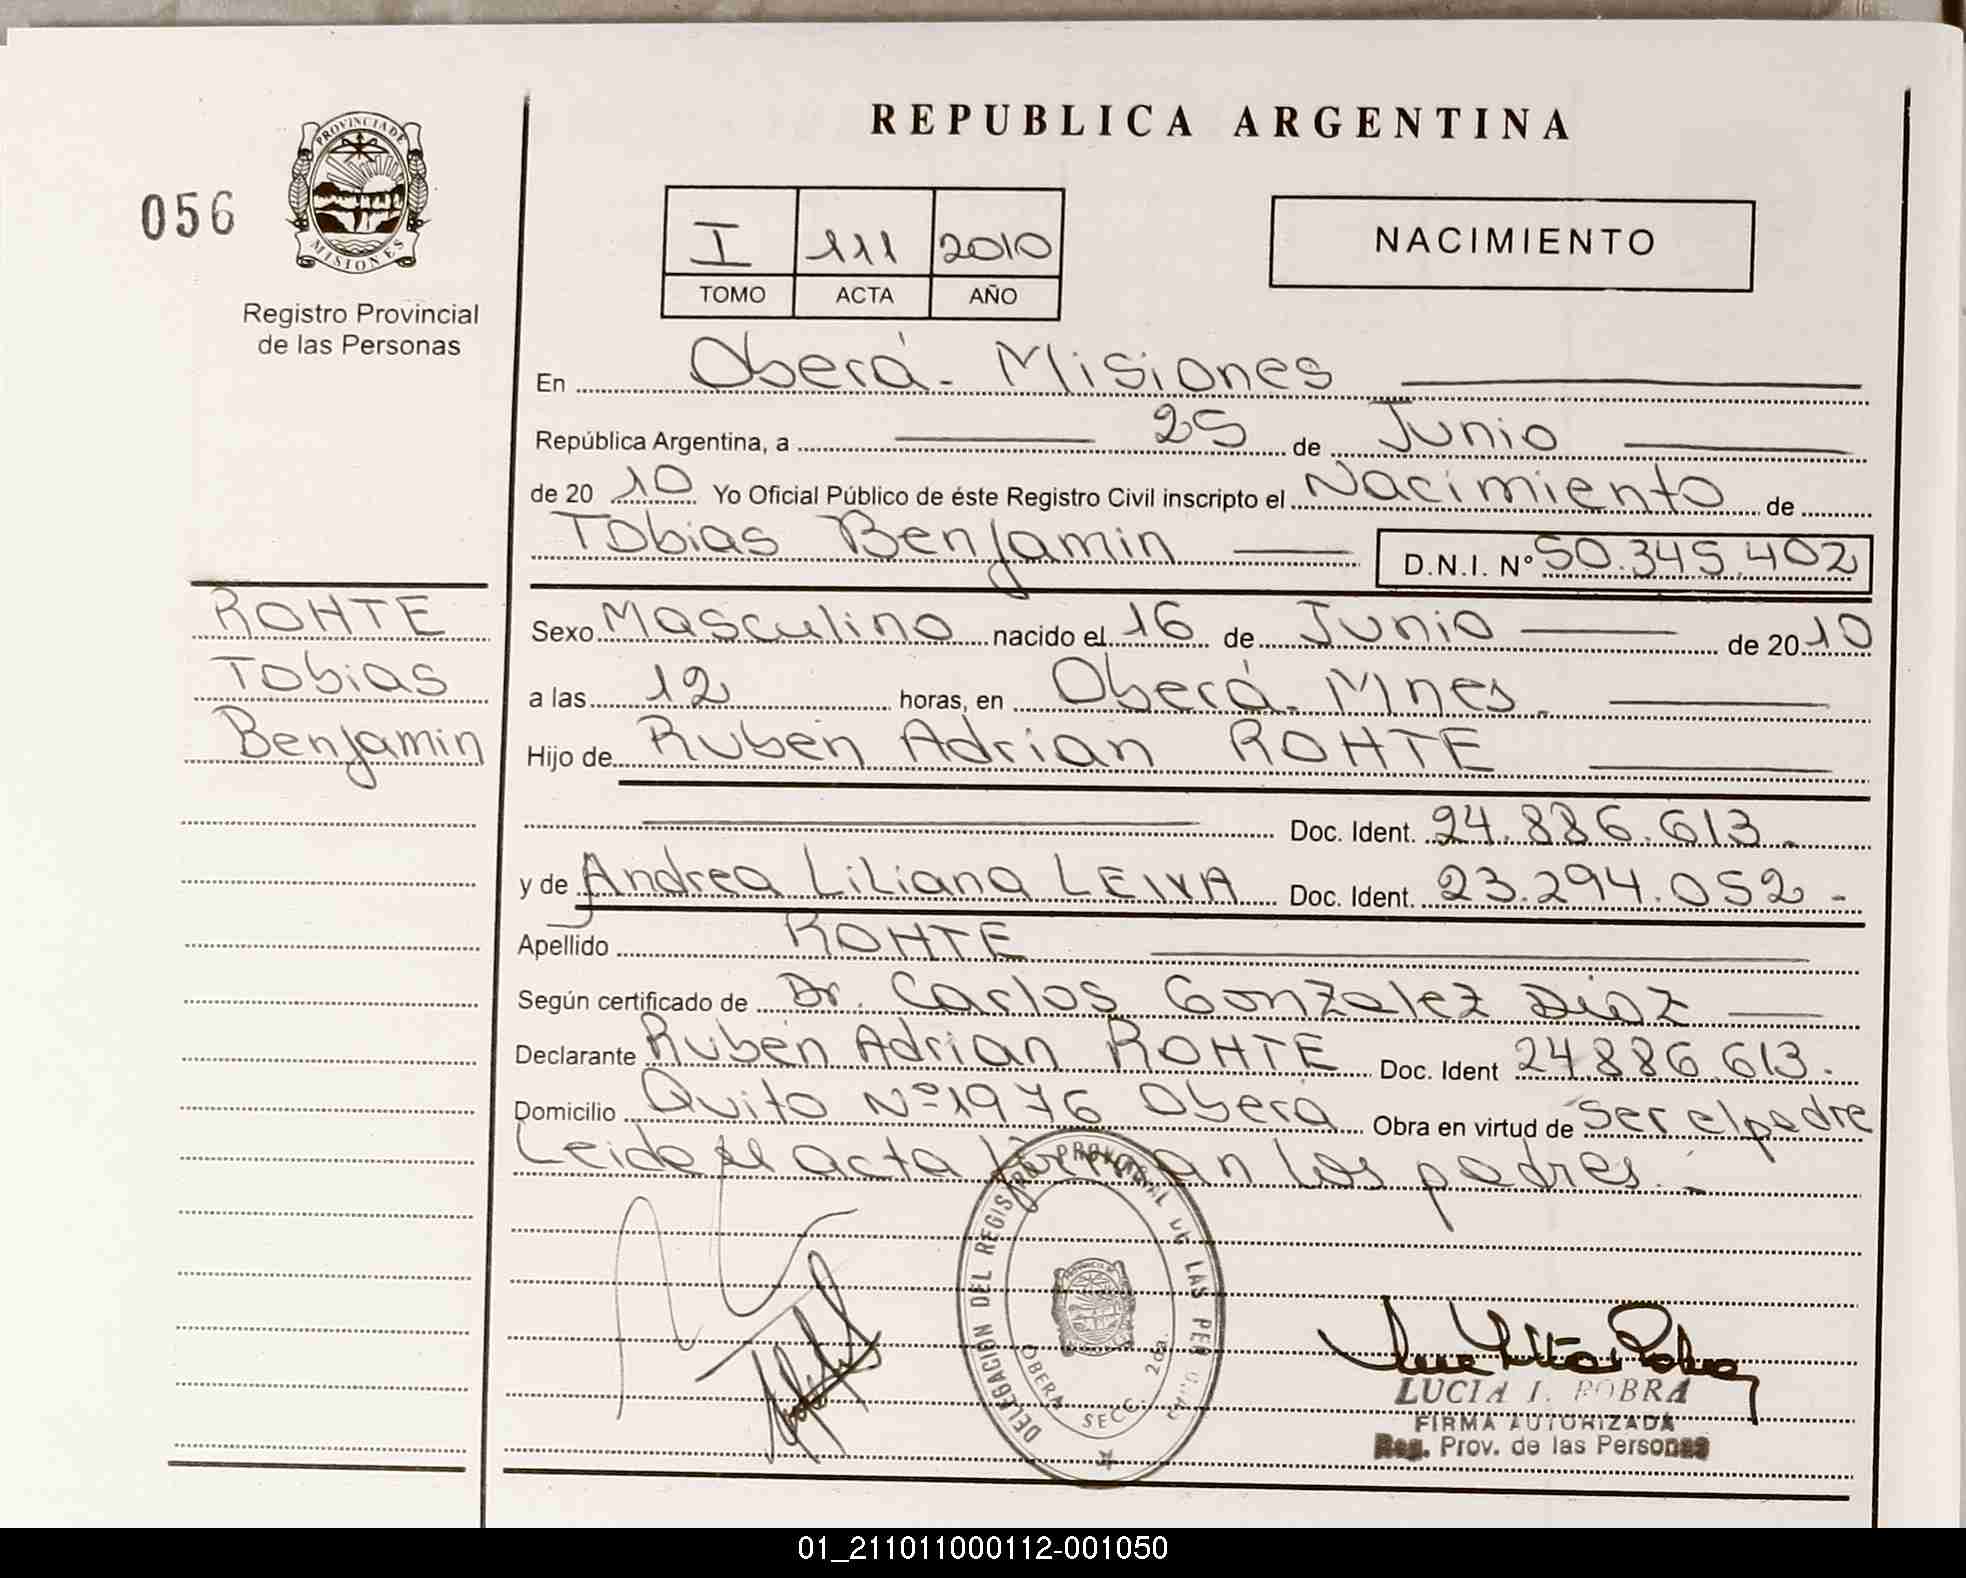 REPUBLICA ARGENTINA
PROVINCIA DE
MISIONES
056
Registro Provincial
de las Personas
I 111 2010
TOMO ACTA AÑO
NACIMIENTO
En Oberá - Misiones
República Argentina, a 25 de Junio
de 20 10 Yo Oficial Público de éste Registro Civil inscripto el Nacimiento de
Tobias Benjamin D.N.I. N° 50.345.402
ROHTE
Tobias
Benjamin
Sexo Masculino nacido el 16 de Junio de 20 10
a las 12 horas, en Oberá - Mnes.
Hijo de Ruben Adrian ROHTE
Doc. Ident. 24.886.613.-
y de Andrea Liliana LEIVA Doc. Ident. 23.294.052 -
Apellido ROHTE
Según certificado de Dr. Carlos Gonzalez Diaz
Declarante Ruben Adrian ROHTE Doc. Ident 24.886.613.
Domicilio Quito Nº 1976 Oberá Obra en virtud de ser el padre
Leida el acta firman los padres.-
DELEGACION DEL REGISTRO PROVINCIAL DE LAS PERSONAS
OBERA SECC. 2da.
LUCIA I. BOBRA
FIRMA AUTORIZADA
Reg. Prov. de las Personas
01_211011000112-001050